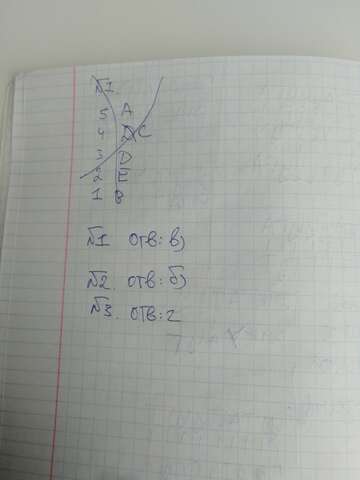 №1
5 A
4 C
3 D
2 E
1 B
№1 отв: в)
№2. отв: б)
№3. отв: г